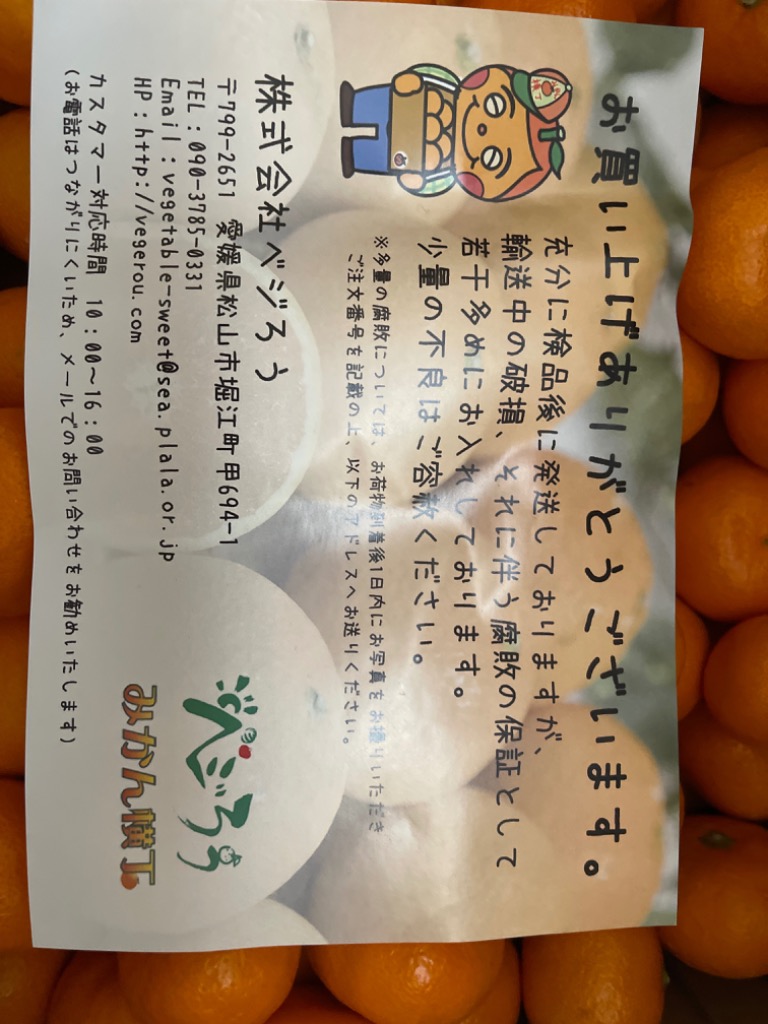 お買い上げありがとうございます。
充分に検品後に発送しておりますが、
輸送中の破損、それに伴う腐敗の保証として
若干多めにお入れしております。
少量の不良はご容赦ください。
※多量の腐敗については、お荷物到着後1日内にお写真をお撮りいただき
ご注文番号を記載の上、以下のアドレスへお送りください。
株式会社ベジろう
〒799-2651 愛媛県松山市堀江町甲694-1
TEL:090-3785-0331
Email:vegetable-sweet@sea.plala.or.jp
HP:http://vegerou.com
カスタマー対応時間 10:00~16:00
(お電話はつながりにくいため、メールでのお問い合わせをお勧めいたします)
ベジろう
みかん横丁